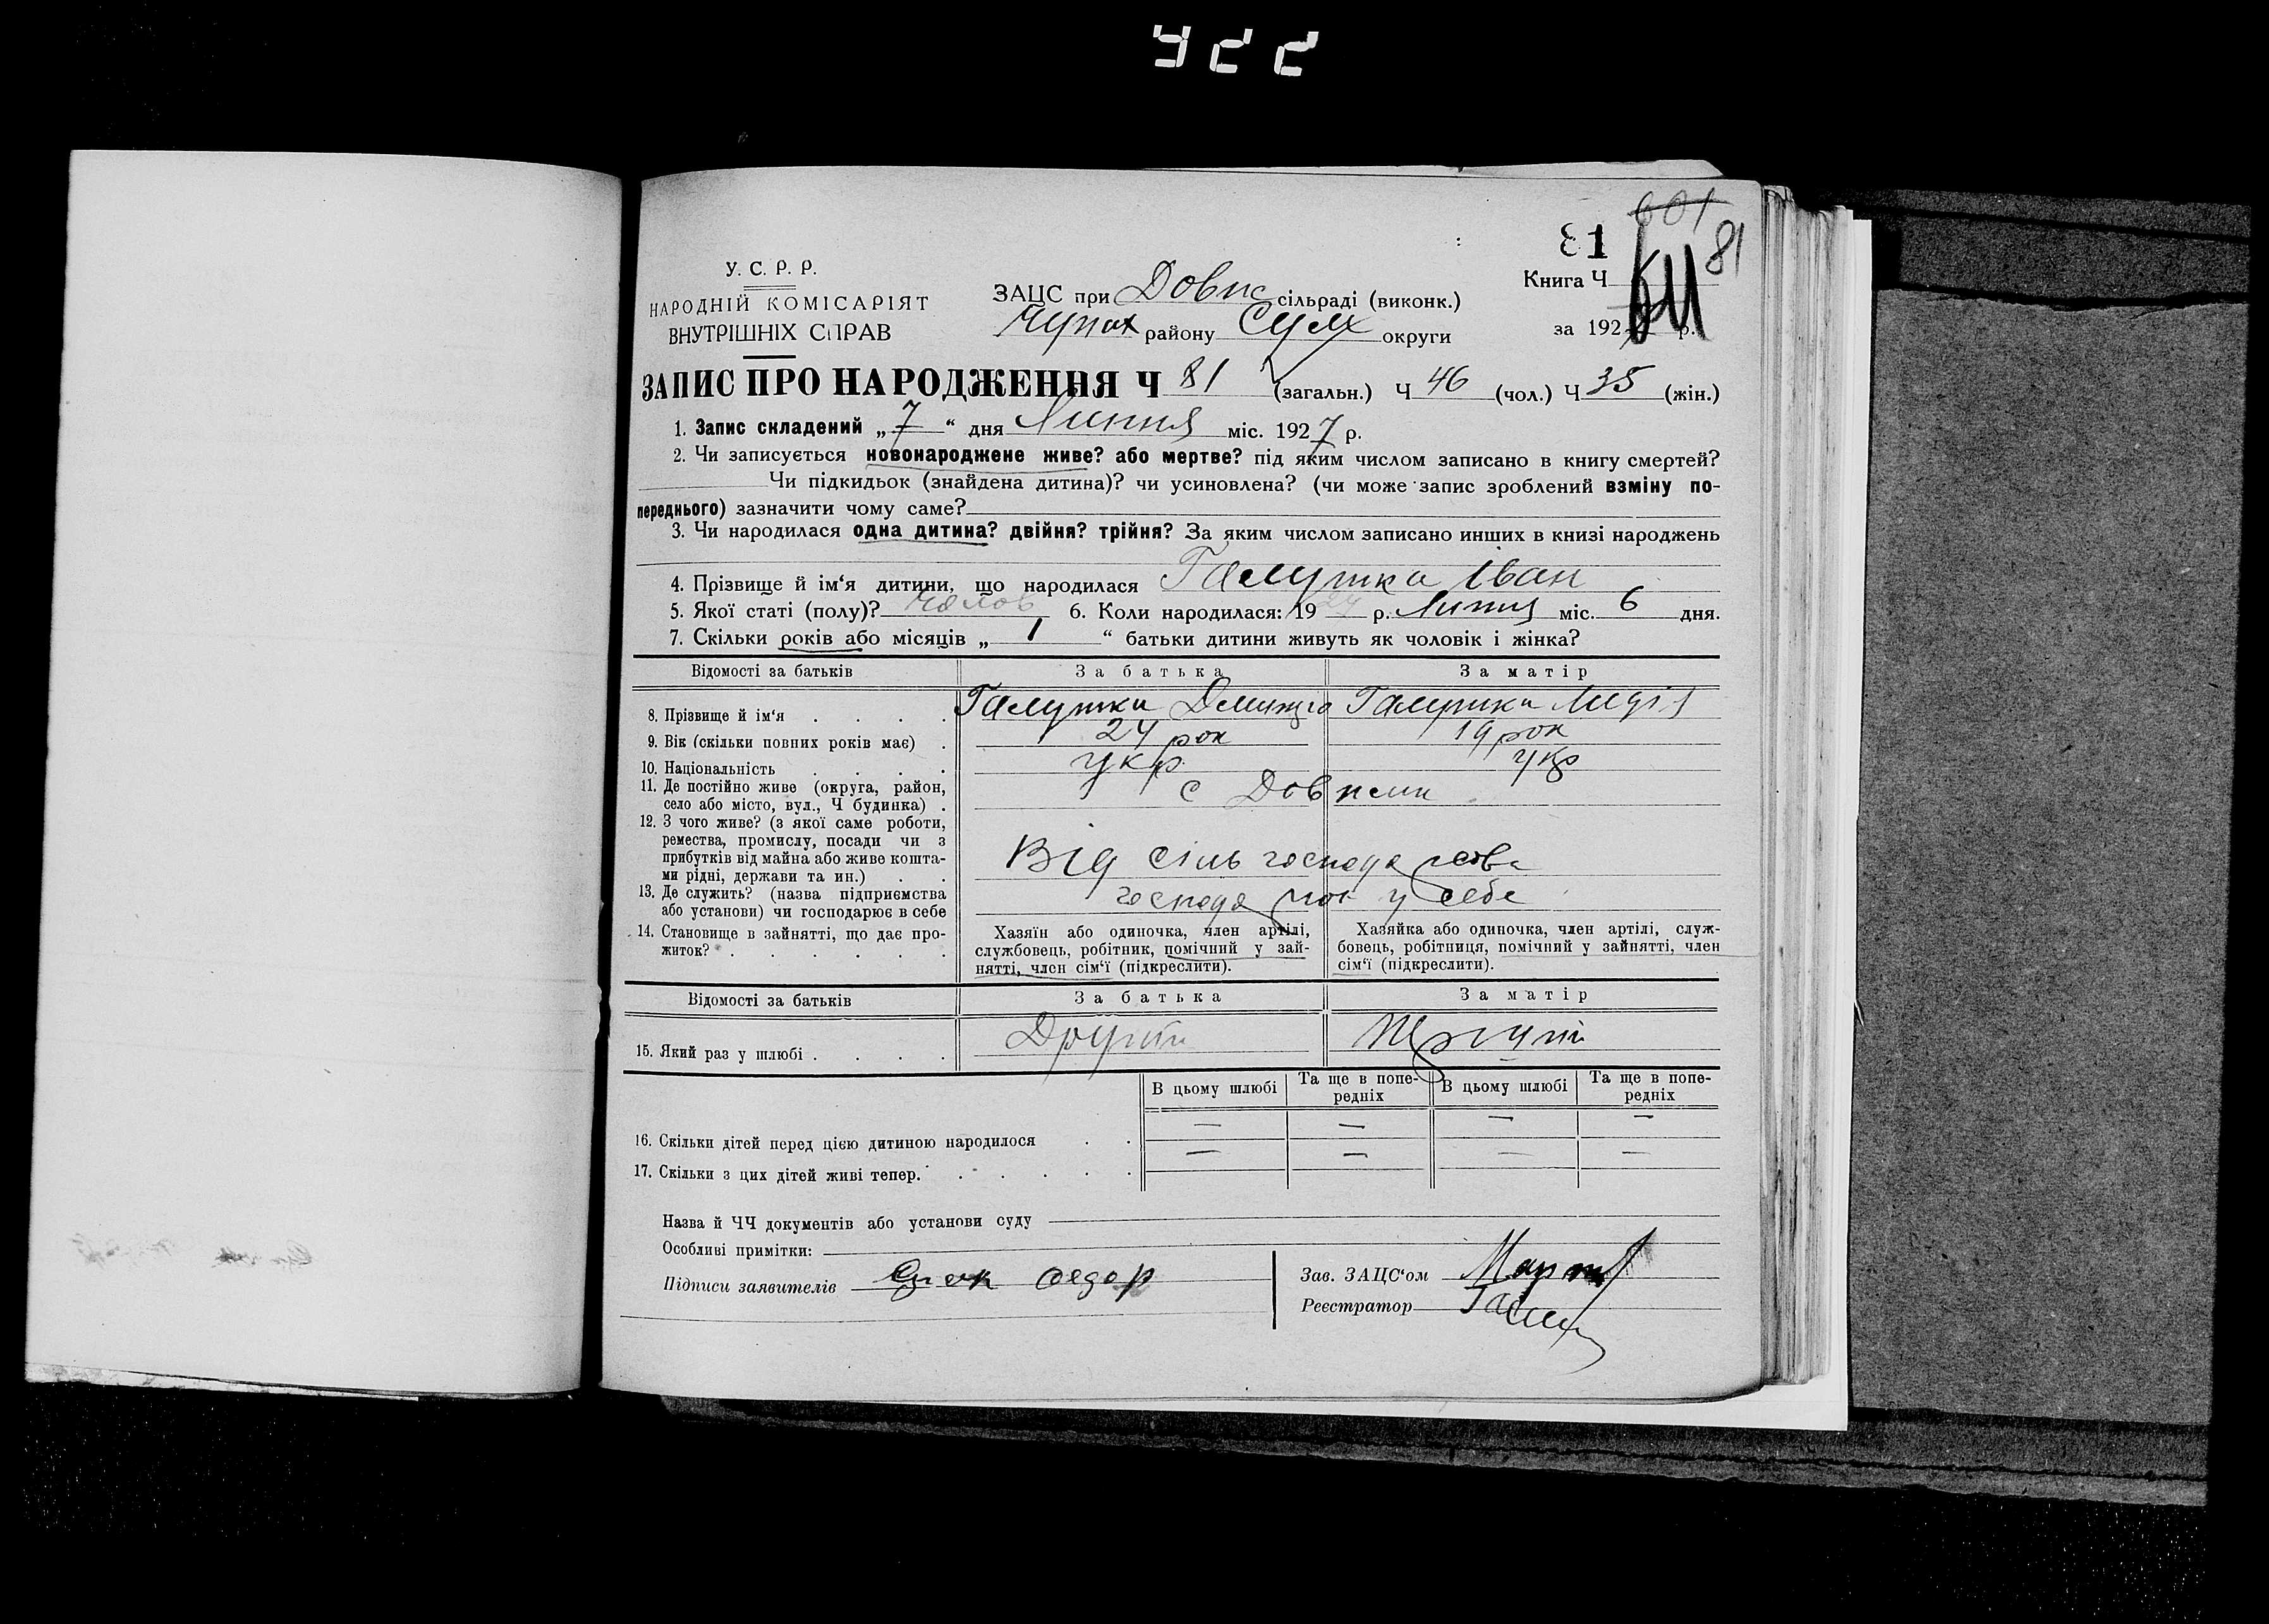 422
601
81
81
У. С. Р. Р.
НАРОДНІЙ КОМІСАРІЯТ
ВНУТРІШНІХ СПРАВ
ЗАЦС при Довпс сільраді (виконк.)
Чупах району Сумс округи
Книга Ч
за 192 р.
ЗАПИС ПРО НАРОДЖЕННЯ Ч 81 (загальн.) Ч 46 (чол.) Ч 35 (жін.)
1. Запис складений „7“ дня Липня міс. 1927 р.
2. Чи записується новонароджене живе? або мертве? під яким числом записано в книгу смертей?
Чи підкидьок (знайдена дитина)? чи усиновлена? (чи може запис зроблений взміну по-
переднього) зазначити чому саме?
3. Чи народилася одна дитина? двійня? трійня? За яким числом записано инших в книзі народжень
4. Прізвище й ім‘я дитини, що народилася Галушка Іван
5. Якої статі (полу)? Чолов 6. Коли народилася: 1927 р. Липня міс. 6 дня.
7. Скільки років або місяців „ 1 “ батьки дитини живуть як чоловік і жінка?
Відомості за батьків За батька За матір
8. Прізвище й ім‘я . . . . Галушка Дмитро Галушка Лидія
9. Вік (скільки повних років має) . 24 рок 19 рок
10. Національність . . . . укр. укр
11. Де постійно живе (округа, район,
село або місто, вул., Ч будинка) . с Довпели
12. З чого живе? (з якої саме роботи,
ремества, промислу, посади чи з
прибутків від майна або живе кошта-
ми рідні, держави та ин.) . . Від сіль господарства
13. Де служить? (назва підприємства
або установи) чи господарює в себе господарює у себе
14. Становище в зайнятті, що дає про-
житок? . . . . . .
Хазяїн або одиночка, член артілі,
службовець, робітник, помічний у зай-
нятті, член сім‘ї (підкреслити).
Хазяйка або одиночка, член артілі, служ-
бовець, робітниця, помічний у зайнятті, член
сім‘ї (підкреслити).
Відомості за батьків За батька За матір
15. Який раз у шлюбі . . . . Другий
В цьому шлюбі Та ще в попе-редніх В цьому шлюбі Та ще в попе-редніх
16. Скільки дітей перед цією дитиною народилося . . — — — —
17. Скільки з цих дітей живі тепер. . . . . . — — — —
Назва й ЧЧ документів або установи суду
Особливі примітки:
Підписи заявителів Федор
Зав. ЗАЦС‘ом
Реєстратор